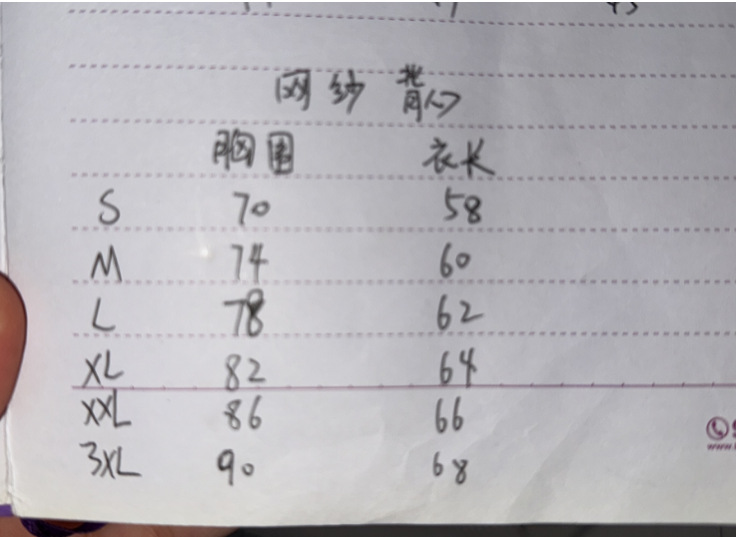 网纱背心
胸围 衣长
S 70 58
M 74 60
L 78 62
XL 82 64
XXL 86 66
3XL 90 68